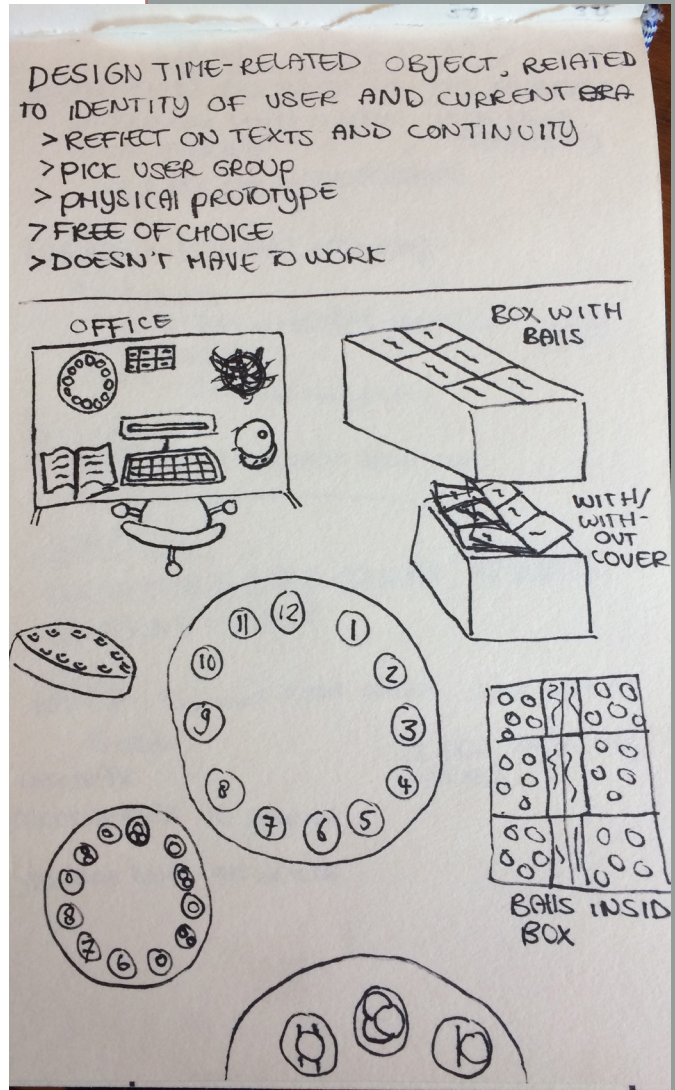 DESIGN TIME-RELATED OBJECT, RElATED
TO IDENTITY OF USER AND CURRENT ERA
> REFlECT ON TEXTS AND CONTINUITY
> PICK USER GROUP
> PHYSICAl PROTOTYPE
> FREE OF CHOICE
> DOESN'T HAVE TO WORK
OFFICE
BOX WITH
BAllS
WITH/
WITH-
OUT
COVER
11 12 1
10 2
9 3
8 4
7 6 5
8
7 6
BAllS INSID
BOX